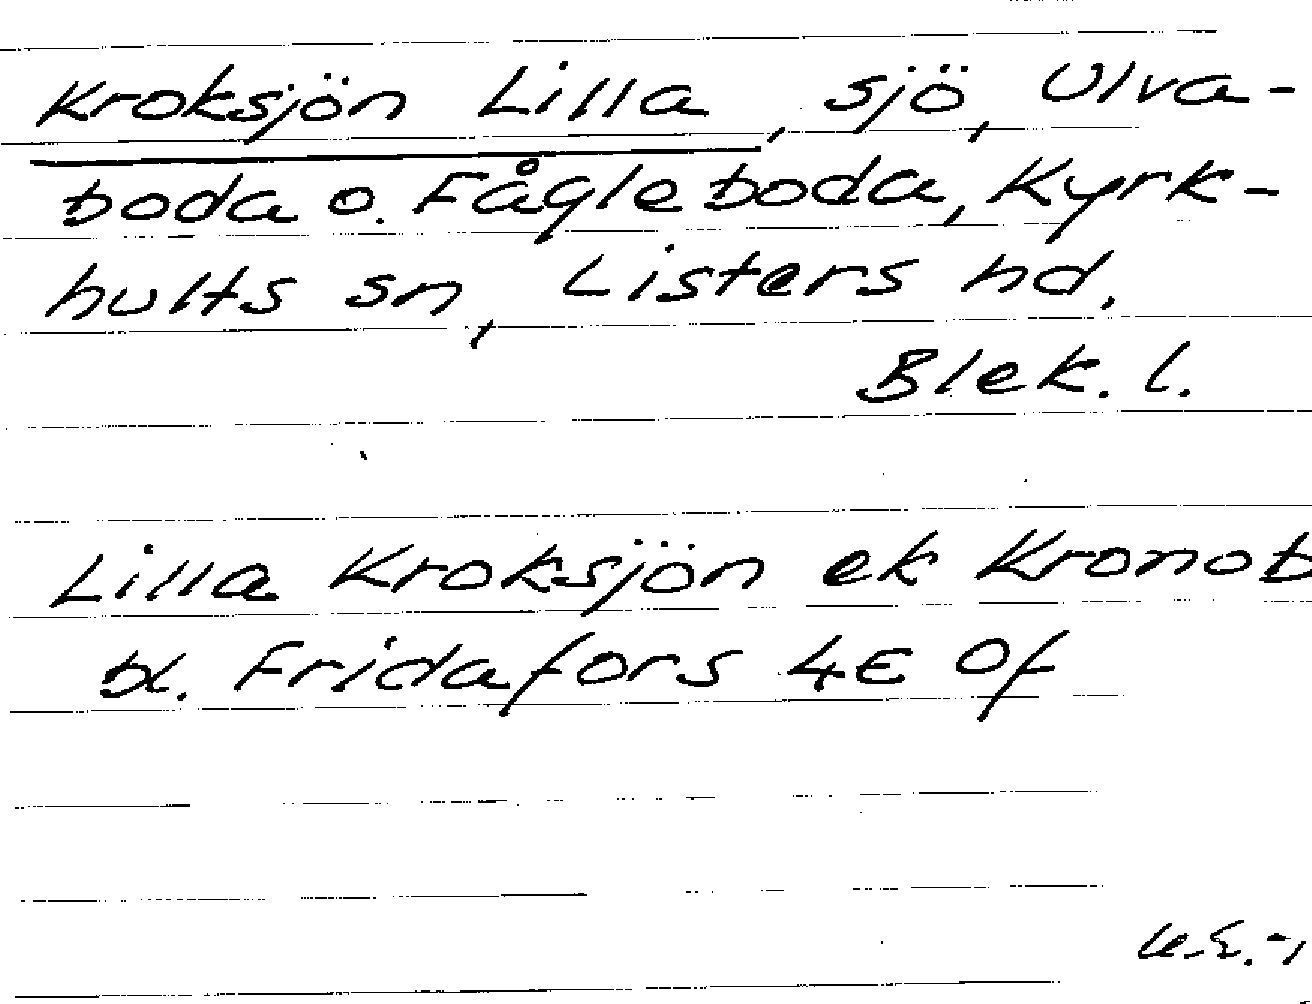 Kroksjön Lilla, sjö, Ulva-
boda o. Fågleboda, Kyrk-
hults sn, Listers hd.
Blek. l.
Lilla Kroksjön ek Kronob
bl. Fridafors 4E Of